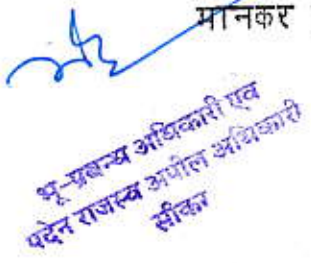 मानकर
भू-प्रबन्ध अधिकारी एवं
पदेन राजस्व अपील अधिकारी
सीकर